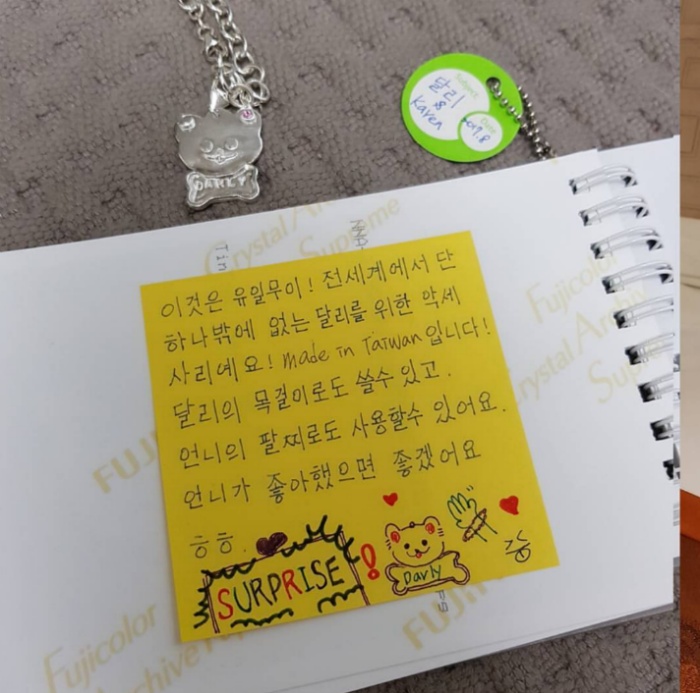 DARLY
Subject
달리
&
Karen
Date
2017.8
이것은 유일무이! 전세계에서 단
하나밖에 없는 달리를 위한 악세
사리예요! made in Taiwan입니다!
달리의 목걸이로도 쓸수 있고.
언니의 팔찌로도 사용할수 있어요.
언니가 좋아했으면 좋겠어요
ㅎㅎ.
SURPRISE!
Darly
Crystal Archive
Supreme
Fujicolor
Crystal Archive
Supreme
Fujicolor